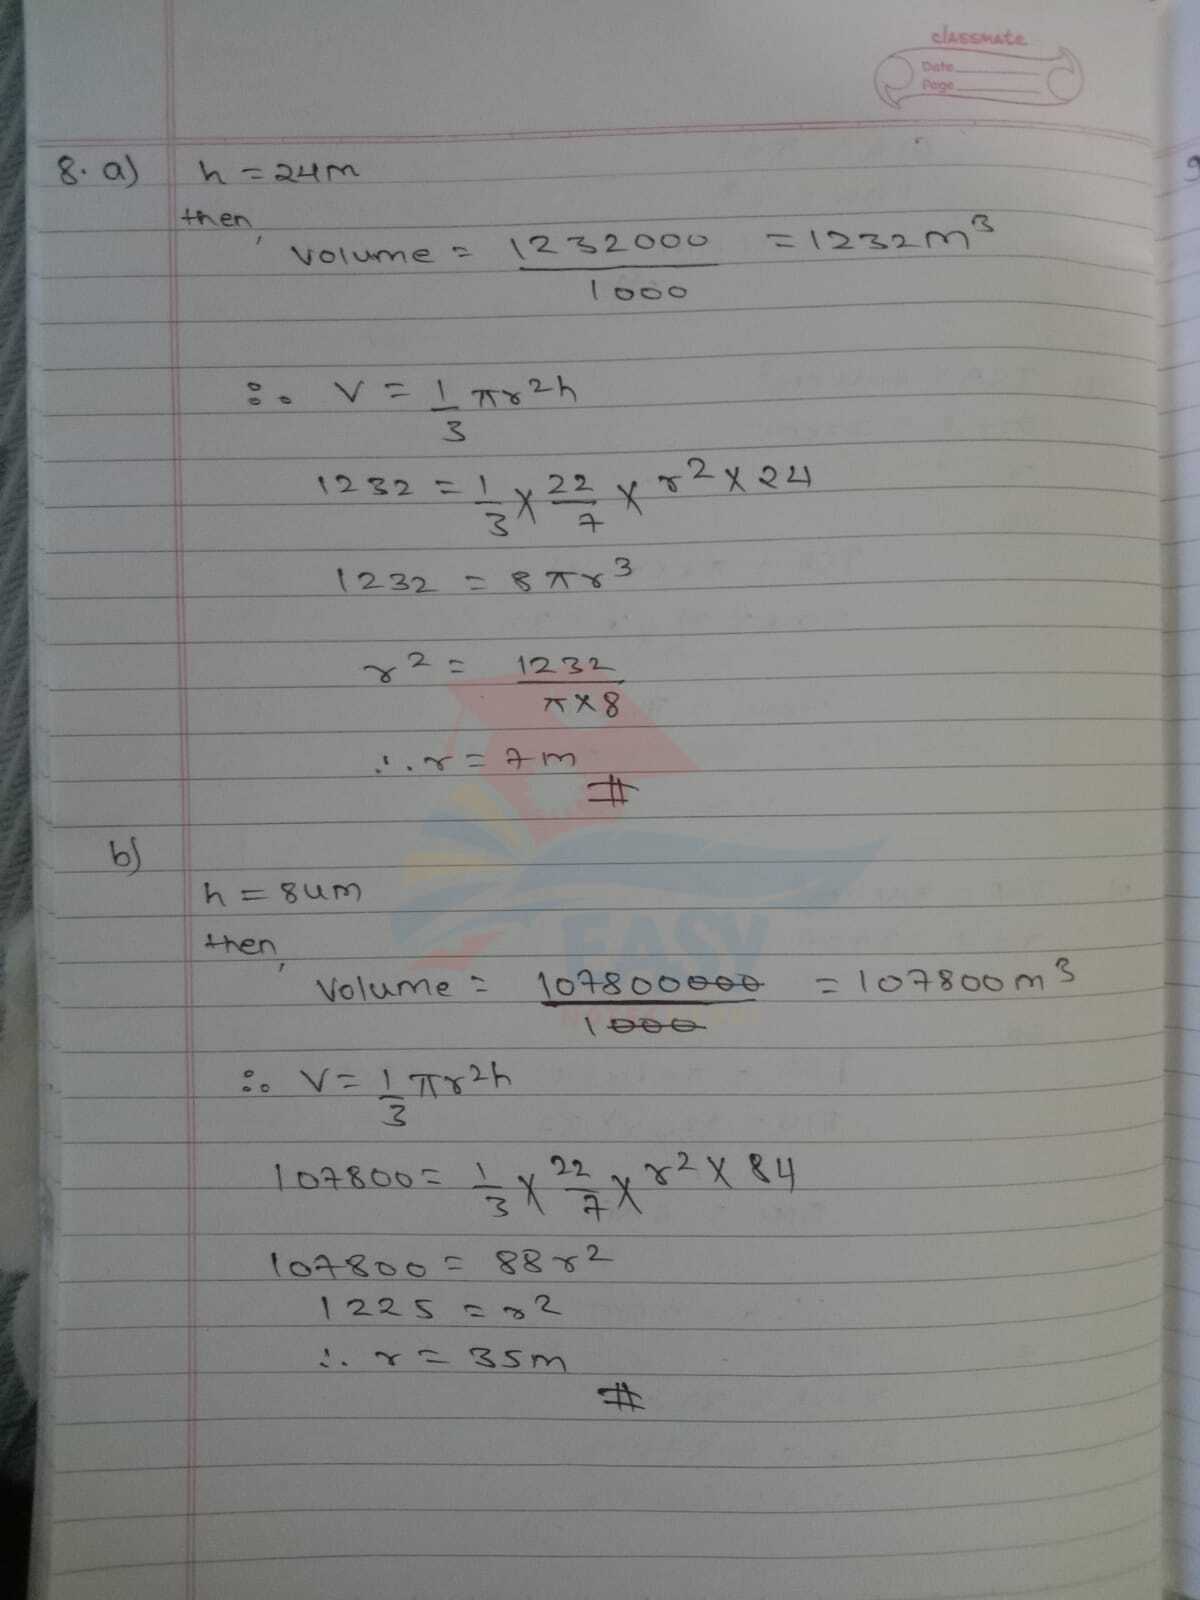 classmate
Date
Page
8. a) h = 24m
then,
Volume = 1232000/1000 = 1232 m³
∴ V = 1/3 πr²h
1232 = 1/3 × 22/7 × r² × 24
1232 = 8πr³
r² = 1232/π×8
∴ r = 7m
#
b)
h = 84m
then,
Volume = 107800000/1000 = 107800 m³
∴ V = 1/3 πr²h
107800 = 1/3 × 22/7 × r² × 84
107800 = 88r²
1225 = r²
∴ r = 35m
#
EASY